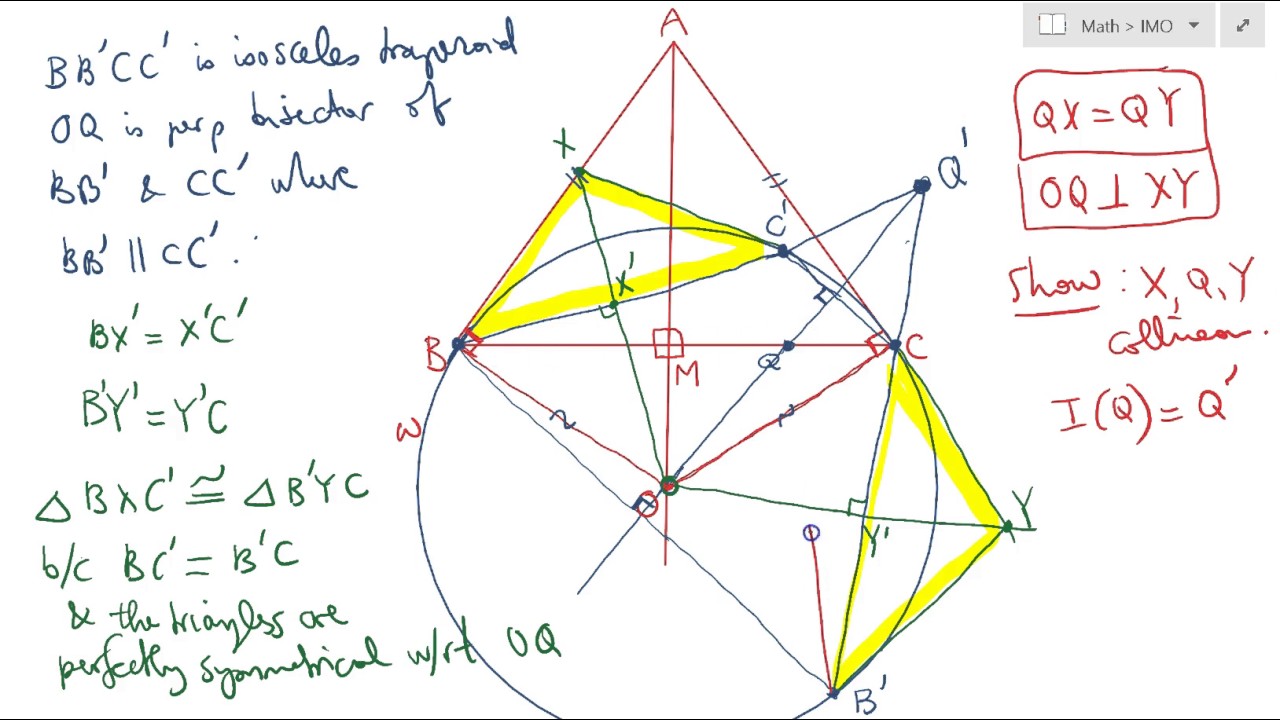 BB'CC' is isosceles trapezoid
OQ is perp bisector of
BB' & CC' where
BB' || CC'.
BX' = X'C'
B'Y' = Y'C
△BXC' ≅ △B'YC
b/c BC' = B'C
& the triangles are
perfectly symmetrical w/rt OQ
A
X
Q'
C'
X'
B
M
Q
C
w
O
Y'
Y
B'
Math > IMO
QX = QY
OQ ⊥ XY
Show: X, Q, Y
collinear.
I(Q) = Q'